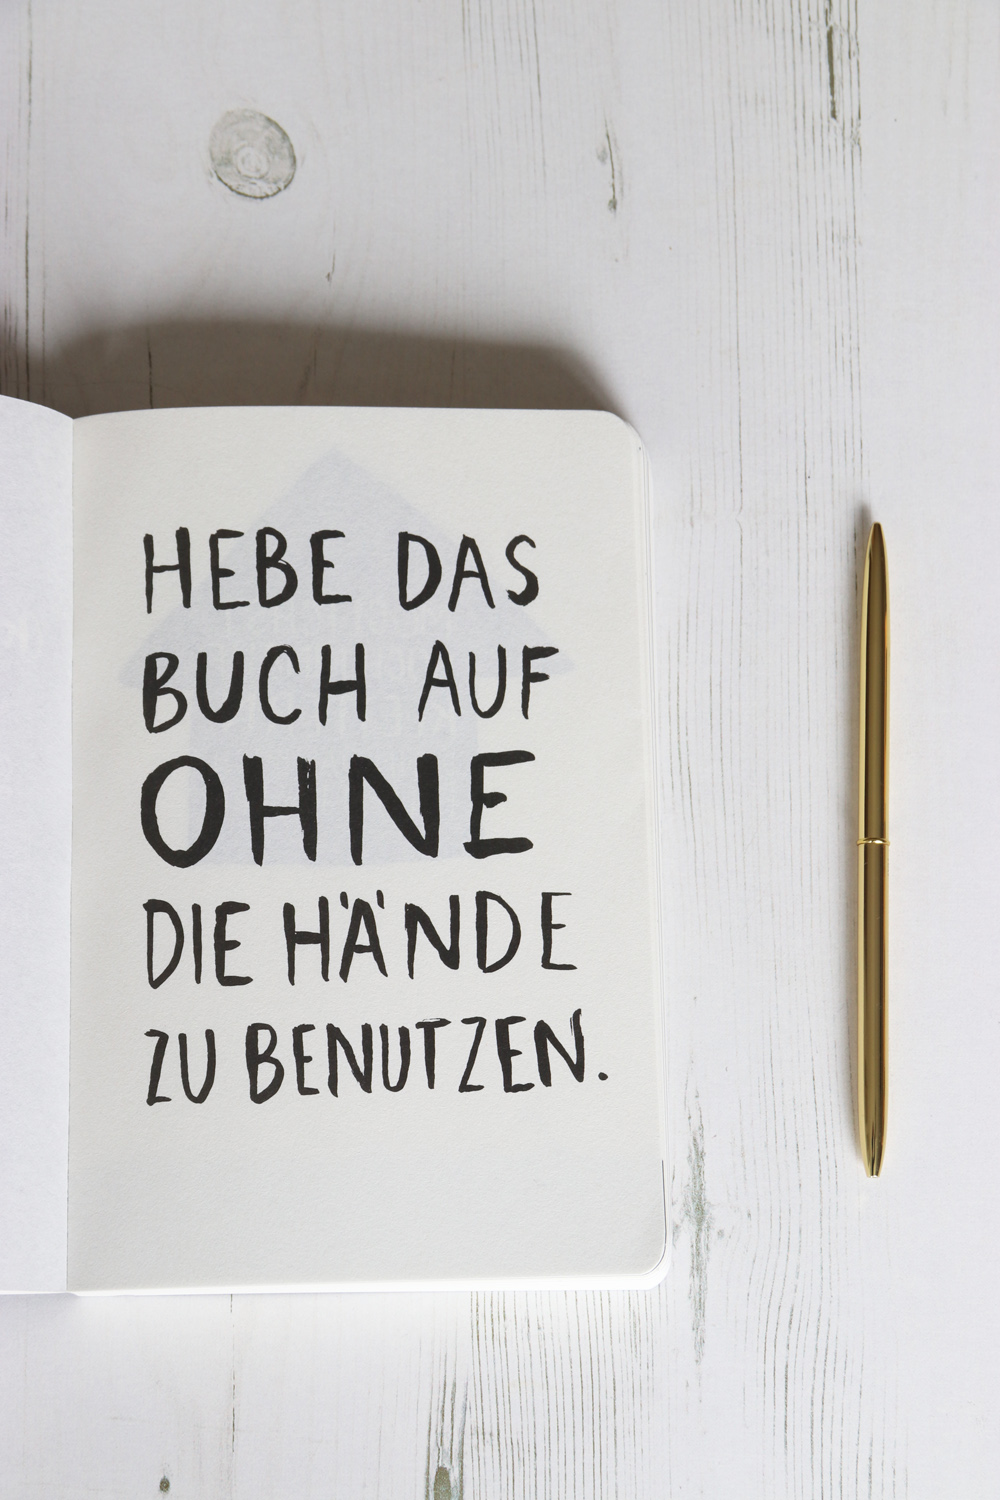 HEBE DAS
BUCH AUF
OHNE
DIE HÄNDE
ZU BENUTZEN.